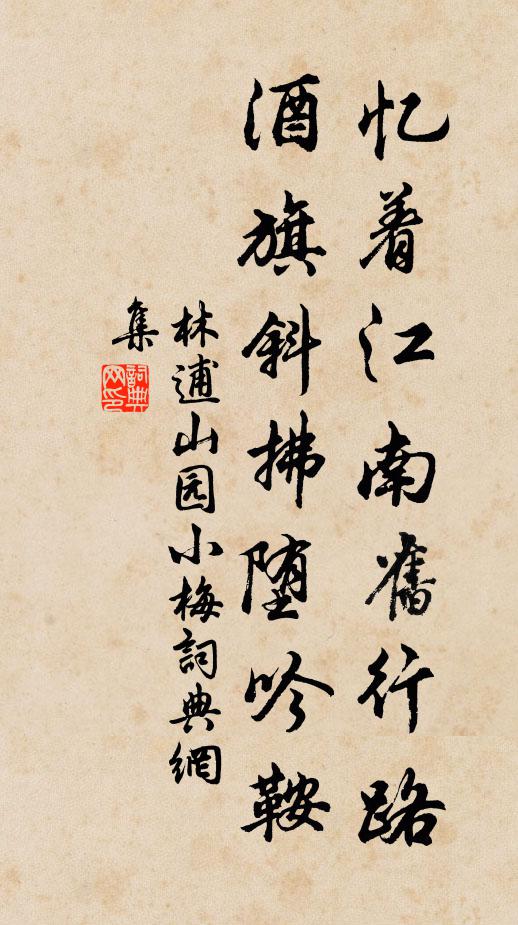 忆着江南舊行路
酒旗斜拂堕吟鞍
林逋山园小梅詞典網
集
詞典网印